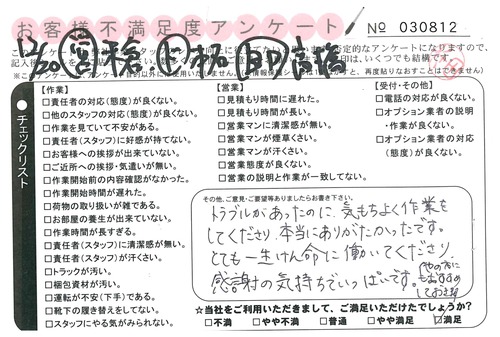 お客様不満足度アンケート
No 030812
チェックリスト
【作業】
□責任者の対応(態度)が良くない。
□他のスタッフの対応(態度)が良くない。
□作業を見ていて不安がある。
□責任者(スタッフ)に好感が持てない。
□お客様への挨拶が出来ていない。
□ご近所への挨拶・気遣いが無い。
□作業開始前の内容確認がなかった。
□作業開始時間が遅れた。
□荷物の取り扱いが雑である。
□お部屋の養生が出来ていない。
□作業時間が長すぎる。
□責任者(スタッフ)に清潔感が無い。
□責任者(スタッフ)が汗くさい。
□トラックが汚い。
□梱包資材が汚い。
□運転が不安(下手)である。
□靴下の履き替えをしてない。
□スタッフにやる気がみられない。
【営業】
□見積もり時間に遅れた。
□見積もり時間が長い。
□営業マンに清潔感が無い。
□営業マンが煙草くさい。
□営業マンが汗くさい。
□営業態度が良くない。
□営業の説明と作業が一致してない。
【受付・その他】
□電話の対応が良くない。
□オプション業者の説明
・作業が良くない。
□オプション業者の対応
(態度)が良くない。
その他、ご意見・ご要望等ありましたらお書き下さい。
トラブルがあったのに、気もちよく作業を
してくださり、本当にありがたかったです。
とても一生けん命に働いてくださり、
感謝の気持ちでいっぱいです。
他の方に
もおすすめ
しておきます
☆当社をご利用いただきまして、ご満足いただけたでしょうか?
□不満 □やや不満 □普通 □やや満足 ☑満足